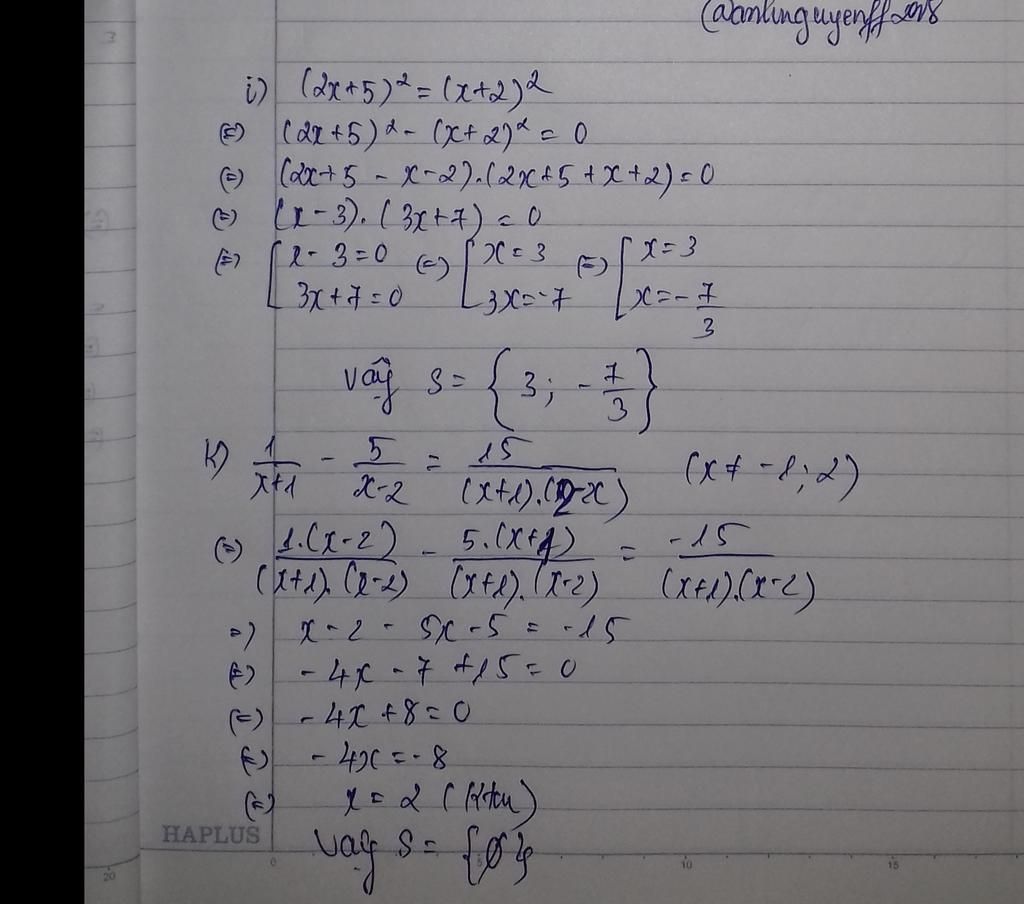 @danlinguyenff2008
i) (2x+5)² = (x+2)²
(=) (2x+5)² - (x+2)² = 0
(=) (2x+5 - x-2).(2x+5+x+2)=0
(=) (x-3).(3x+7) = 0
(=) [x-3=0 (=) [x=3 (=) [x=3
3x+7=0 3x=-7 x=-7/3
vây S= {3; -7/3}
k) 1/(x+1) - 5/(x-2) = 15/((x+1).(2-x)) (x≠ -1; 2)
(=) 1.(x-2)/((x+1).(x-2)) - 5.(x+1)/((x+1).(x-2)) = -15/((x+1).(x-2))
=) x-2 - 5x-5 = -15
(=) -4x - 7 +15 = 0
(=) -4x +8=0
(=) -4x = -8
(=) x = 2 (Ktm)
Vậy S= {Ø}
HAPLUS
20 0 5 10 15